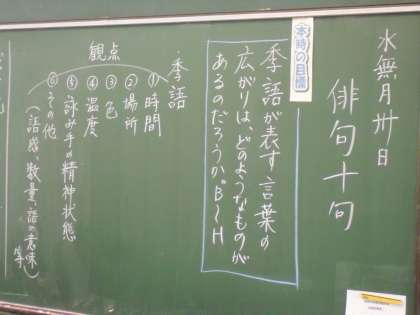 水無月卅日
俳句十句
本時の目標
季語が表す言葉の
広がりは、どのようなものが
あるのだろうか。B〜H
季語
観点
①時間
②場所
③色
④温度
⑤詠み手の精神状態
⑥その他
(語感、数量、語の意味)等